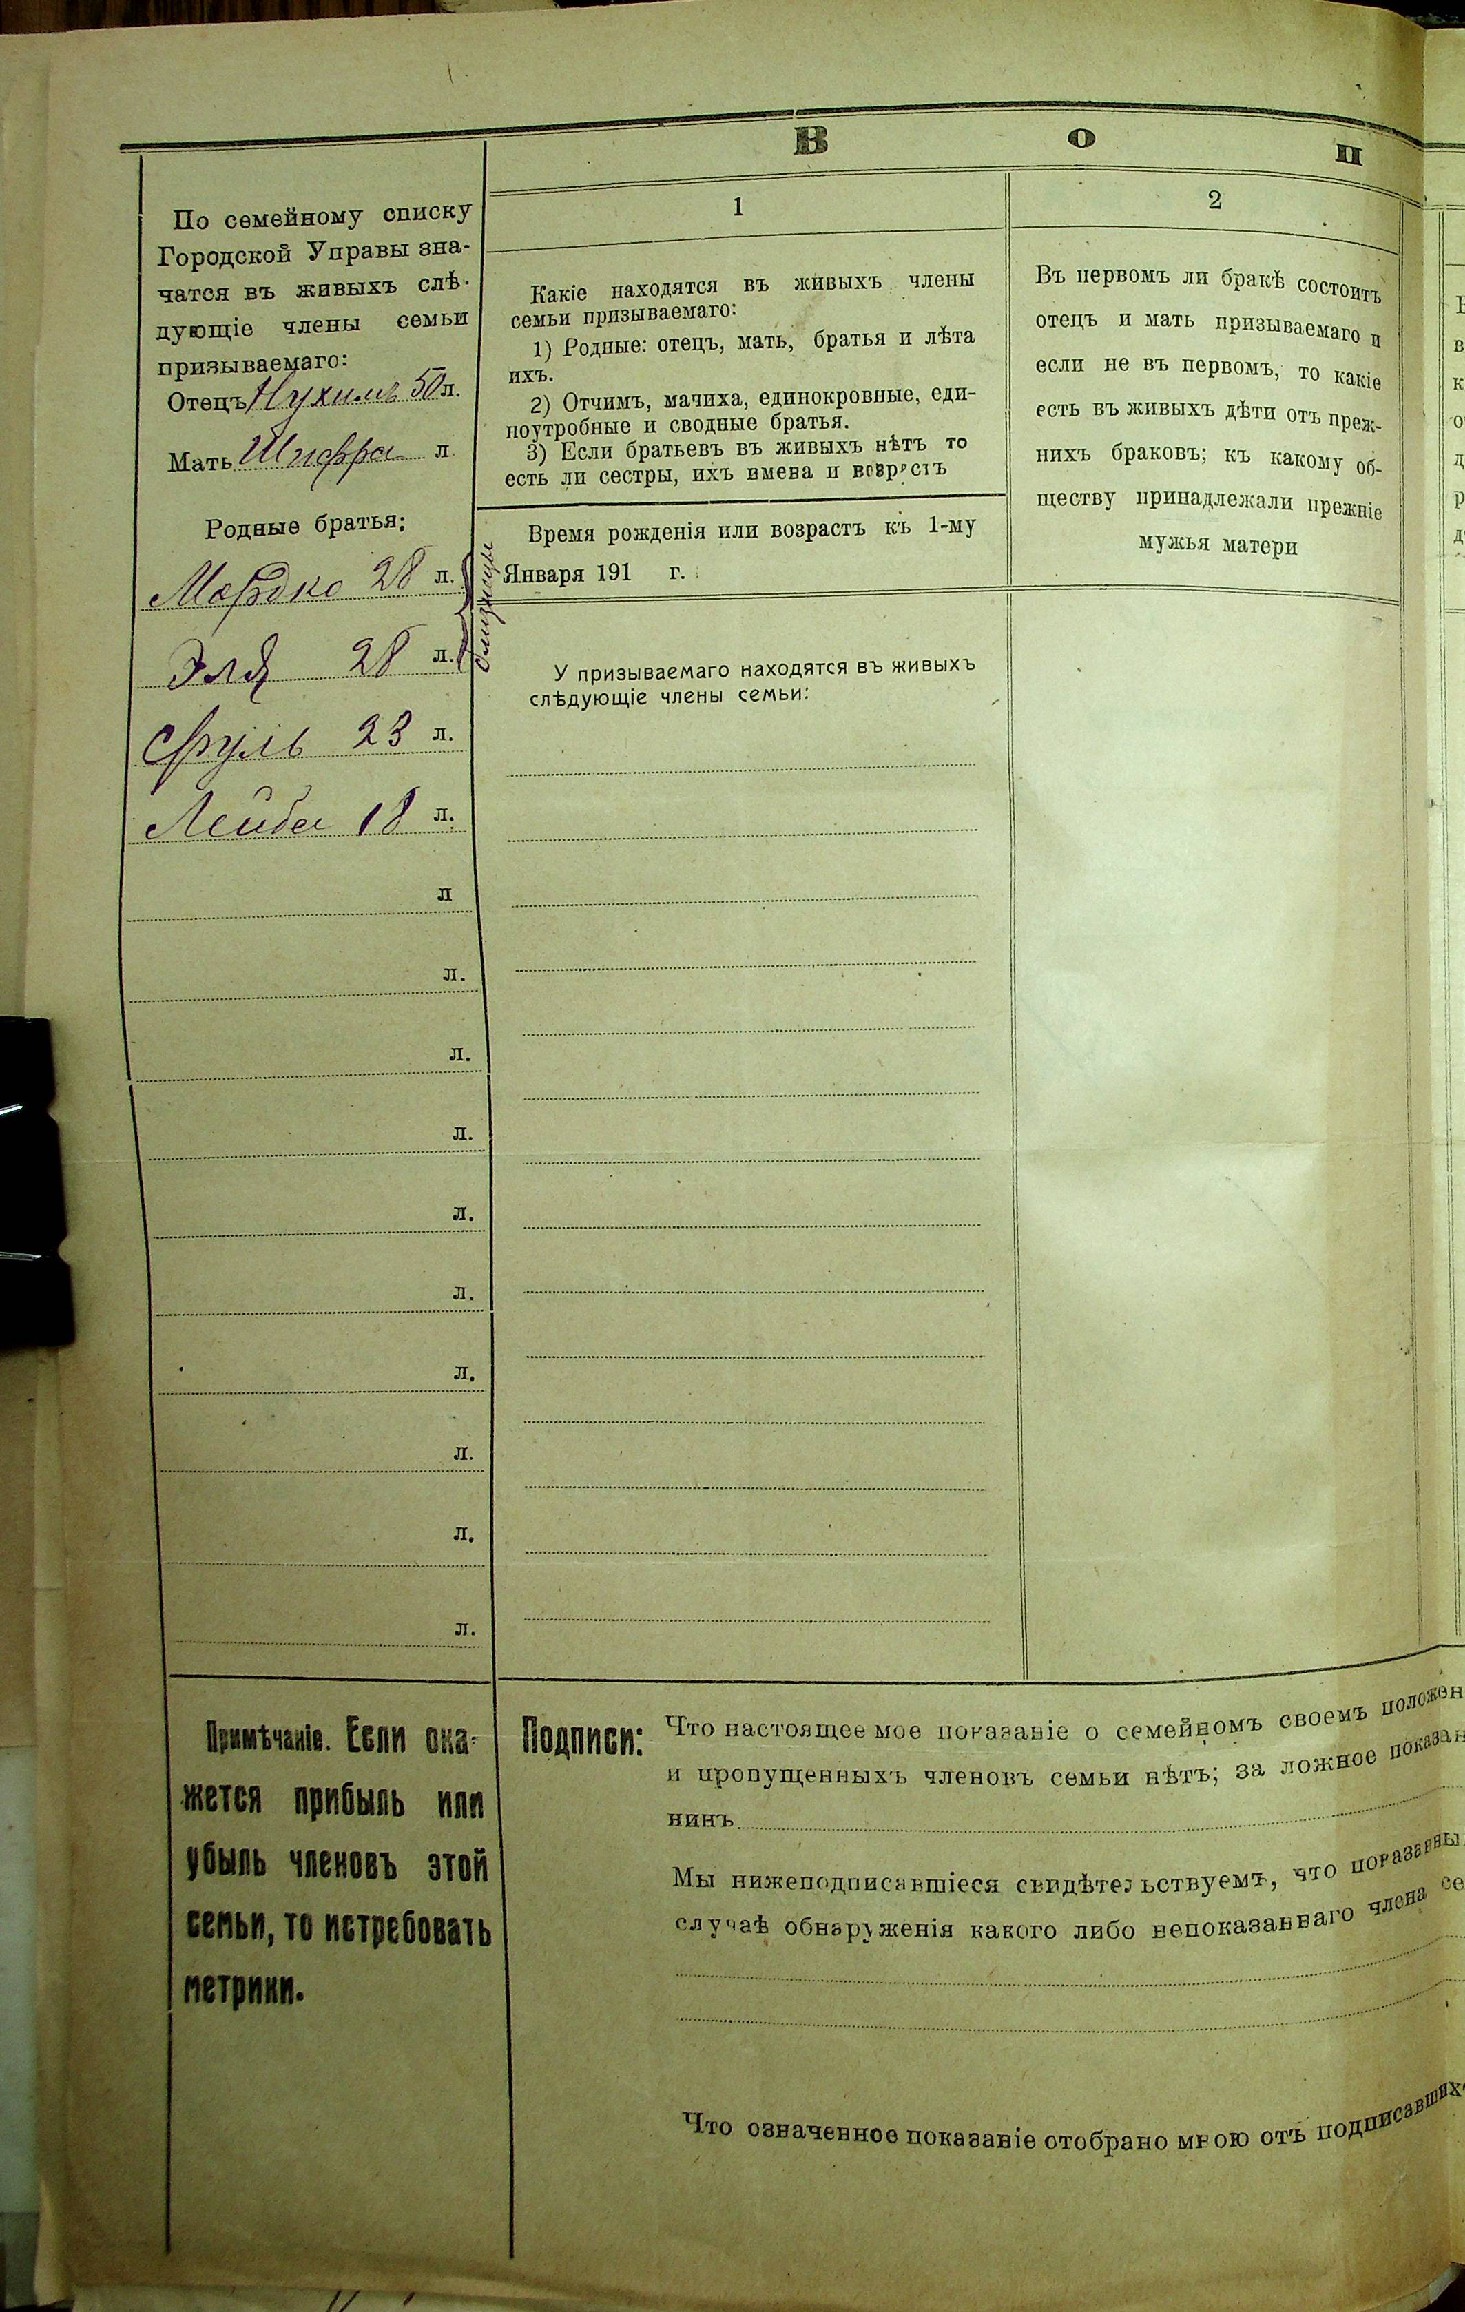 В о п
По семейному списку
Городской Управы зна-
чатся въ живыхъ слѣ-
дующіе члены семьи
призываемаго:
Отецъ Нухимъ 50 л.
Мать Шифра л.
Родные братья:
Мордко 28 л.
Эля 28 л.
близнецы
Сруль 23 л.
Лейба 18 л.
л
л.
л.
л.
л.
л.
л.
л.
л.
л.
Примѣчаніе. Если ока-
жется прибыль или
убыль членовъ этой
семьи, то истребовать
метрики.
1
Какіе находятся въ живыхъ члены
семьи призываемаго:
1) Родные: отецъ, мать, братья и лѣта
ихъ.
2) Отчимъ, мачиха, единокровные, еди-
ноутробные и сводные братья.
3) Если братьевъ въ живыхъ нѣтъ то
есть ли сестры, ихъ имена и возрастъ
Время рожденія или возрастъ къ 1-му
Января 191 г.
У призываемаго находятся въ живыхъ
слѣдующіе члены семьи:
2
Въ первомъ ли бракѣ состоитъ
отецъ и мать призываемаго и
если не въ первомъ, то какіе
есть въ живыхъ дѣти отъ преж-
нихъ браковъ; къ какому об-
ществу принадлежали прежніе
мужья матери
Подписи: Что настоящее мое показаніе о семейномъ своемъ положен
и пропущенныхъ членовъ семьи нѣтъ; за ложное показан
нинъ
Мы нижеподписавшіеся свидѣтельствуемъ, что показанны
случаѣ обнаруженія какого либо непоказаннаго члена се
Что означенное показаніе отобрано мною отъ подписавших